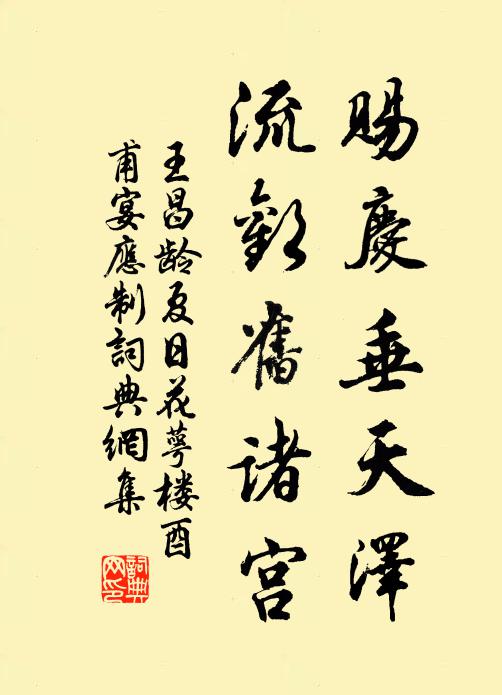 賜慶垂天澤
流歡舊诸宫
王昌龄夏日花萼楼酉
甫宴應制詞典網集
詞典
网印